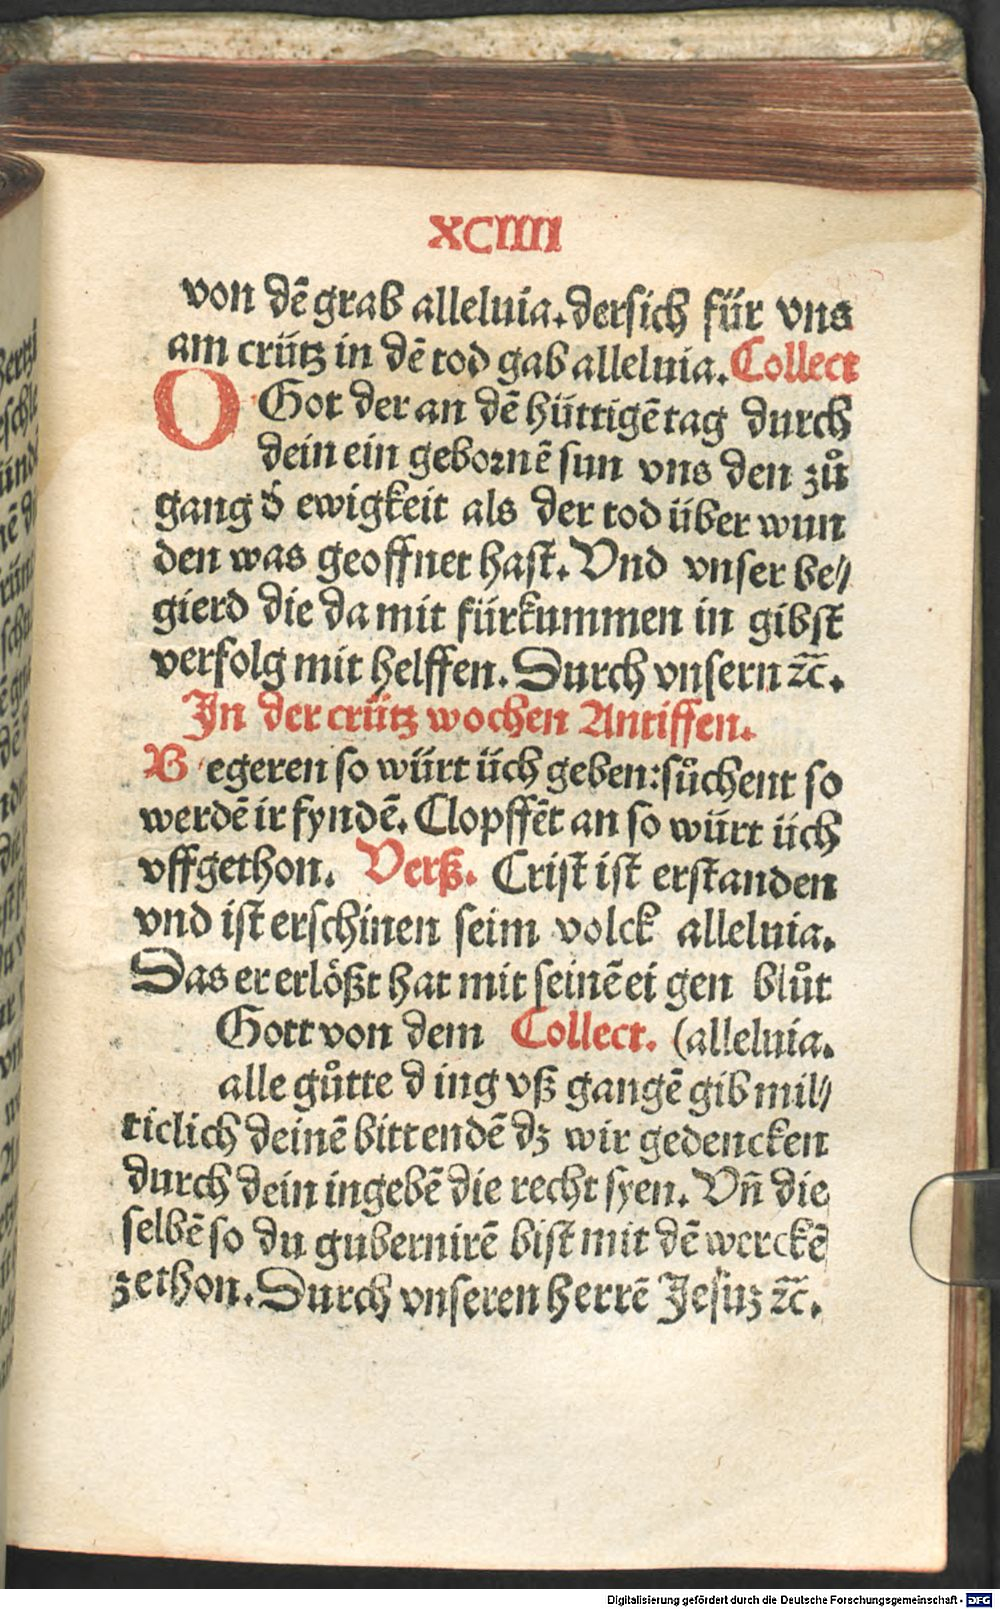 XCIIII
von dē grab alleluia. dersich für vns
am crütz in dē tod gab alleluia. Collect
O Got der an dē hüttigē tag durch
dein ein gebornē sun vns den zů
gang d̾ ewigkeit als der tod über wun
den was geoffnet hast. Vnd vnser be⸗
gierd die da mit fürkummen in gibst
verfolg mit helffen. Durch vnsern ⁊c̄.
In der crütz wochen Antiffen.
Begeren so würt üch geben: sůchent so
werdē ir fyndē. Clopffēt an so würt üch
vffgethon. Verß. Crist ist erstanden
vnd ist erschinen seim volck alleluia.
Das er erlößt hat mit seinē ei gen blůt
Gott von dem Collect. (alleluia.
alle gůtte d ing vß gangē gib mil⸗
ticlich deinē bittendē dz wir gedencken
durch dein ingebē die recht syen. Vn̄ die
selbē so du gubernirē bist mit dē werckē
zethon. Durch vnseren herrē Jesuz ⁊c̄.
Digitalisierung gefördert durch die Deutsche Forschungsgemeinschaft - DFG